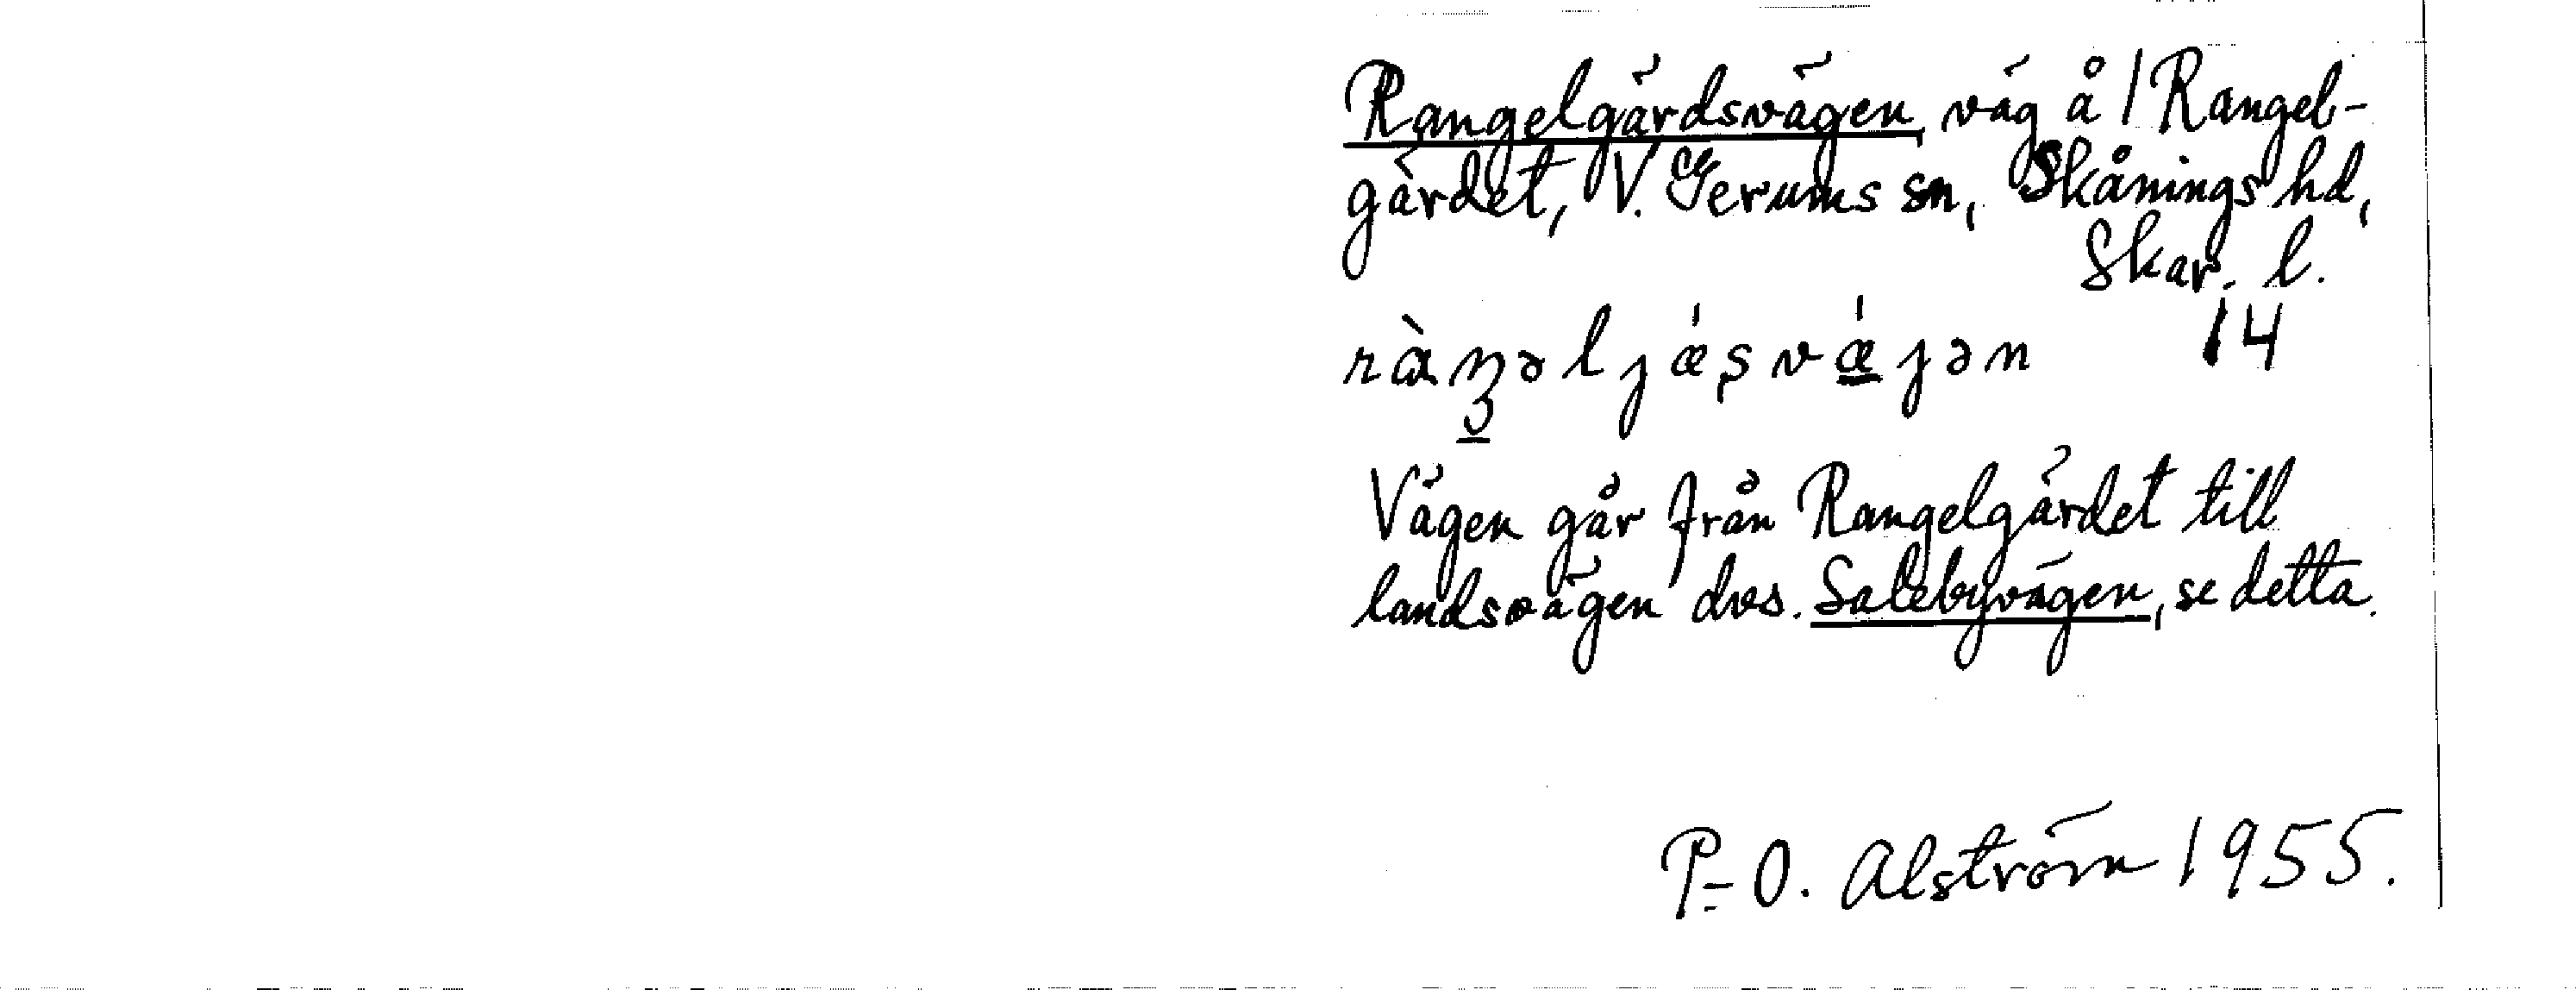 Rangelgärdsvägen, väg å 1 Rangel-
gärdet, V. Gerums sn, Skånings hd,
Skar. l.
14
Vägen går från Rangelgärdet till
landsvägen dvs. Salebyvägen, se detta.
P-O. Alström 1955.